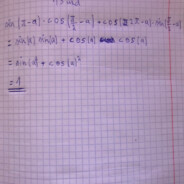 sin(π-α)·cos(π/2-α)+cos(2π-α)·sin(π/2-α)
= sin(α) sin(α) + cos(α) cos(α)
= sin(α)² + cos(α)²
= 1